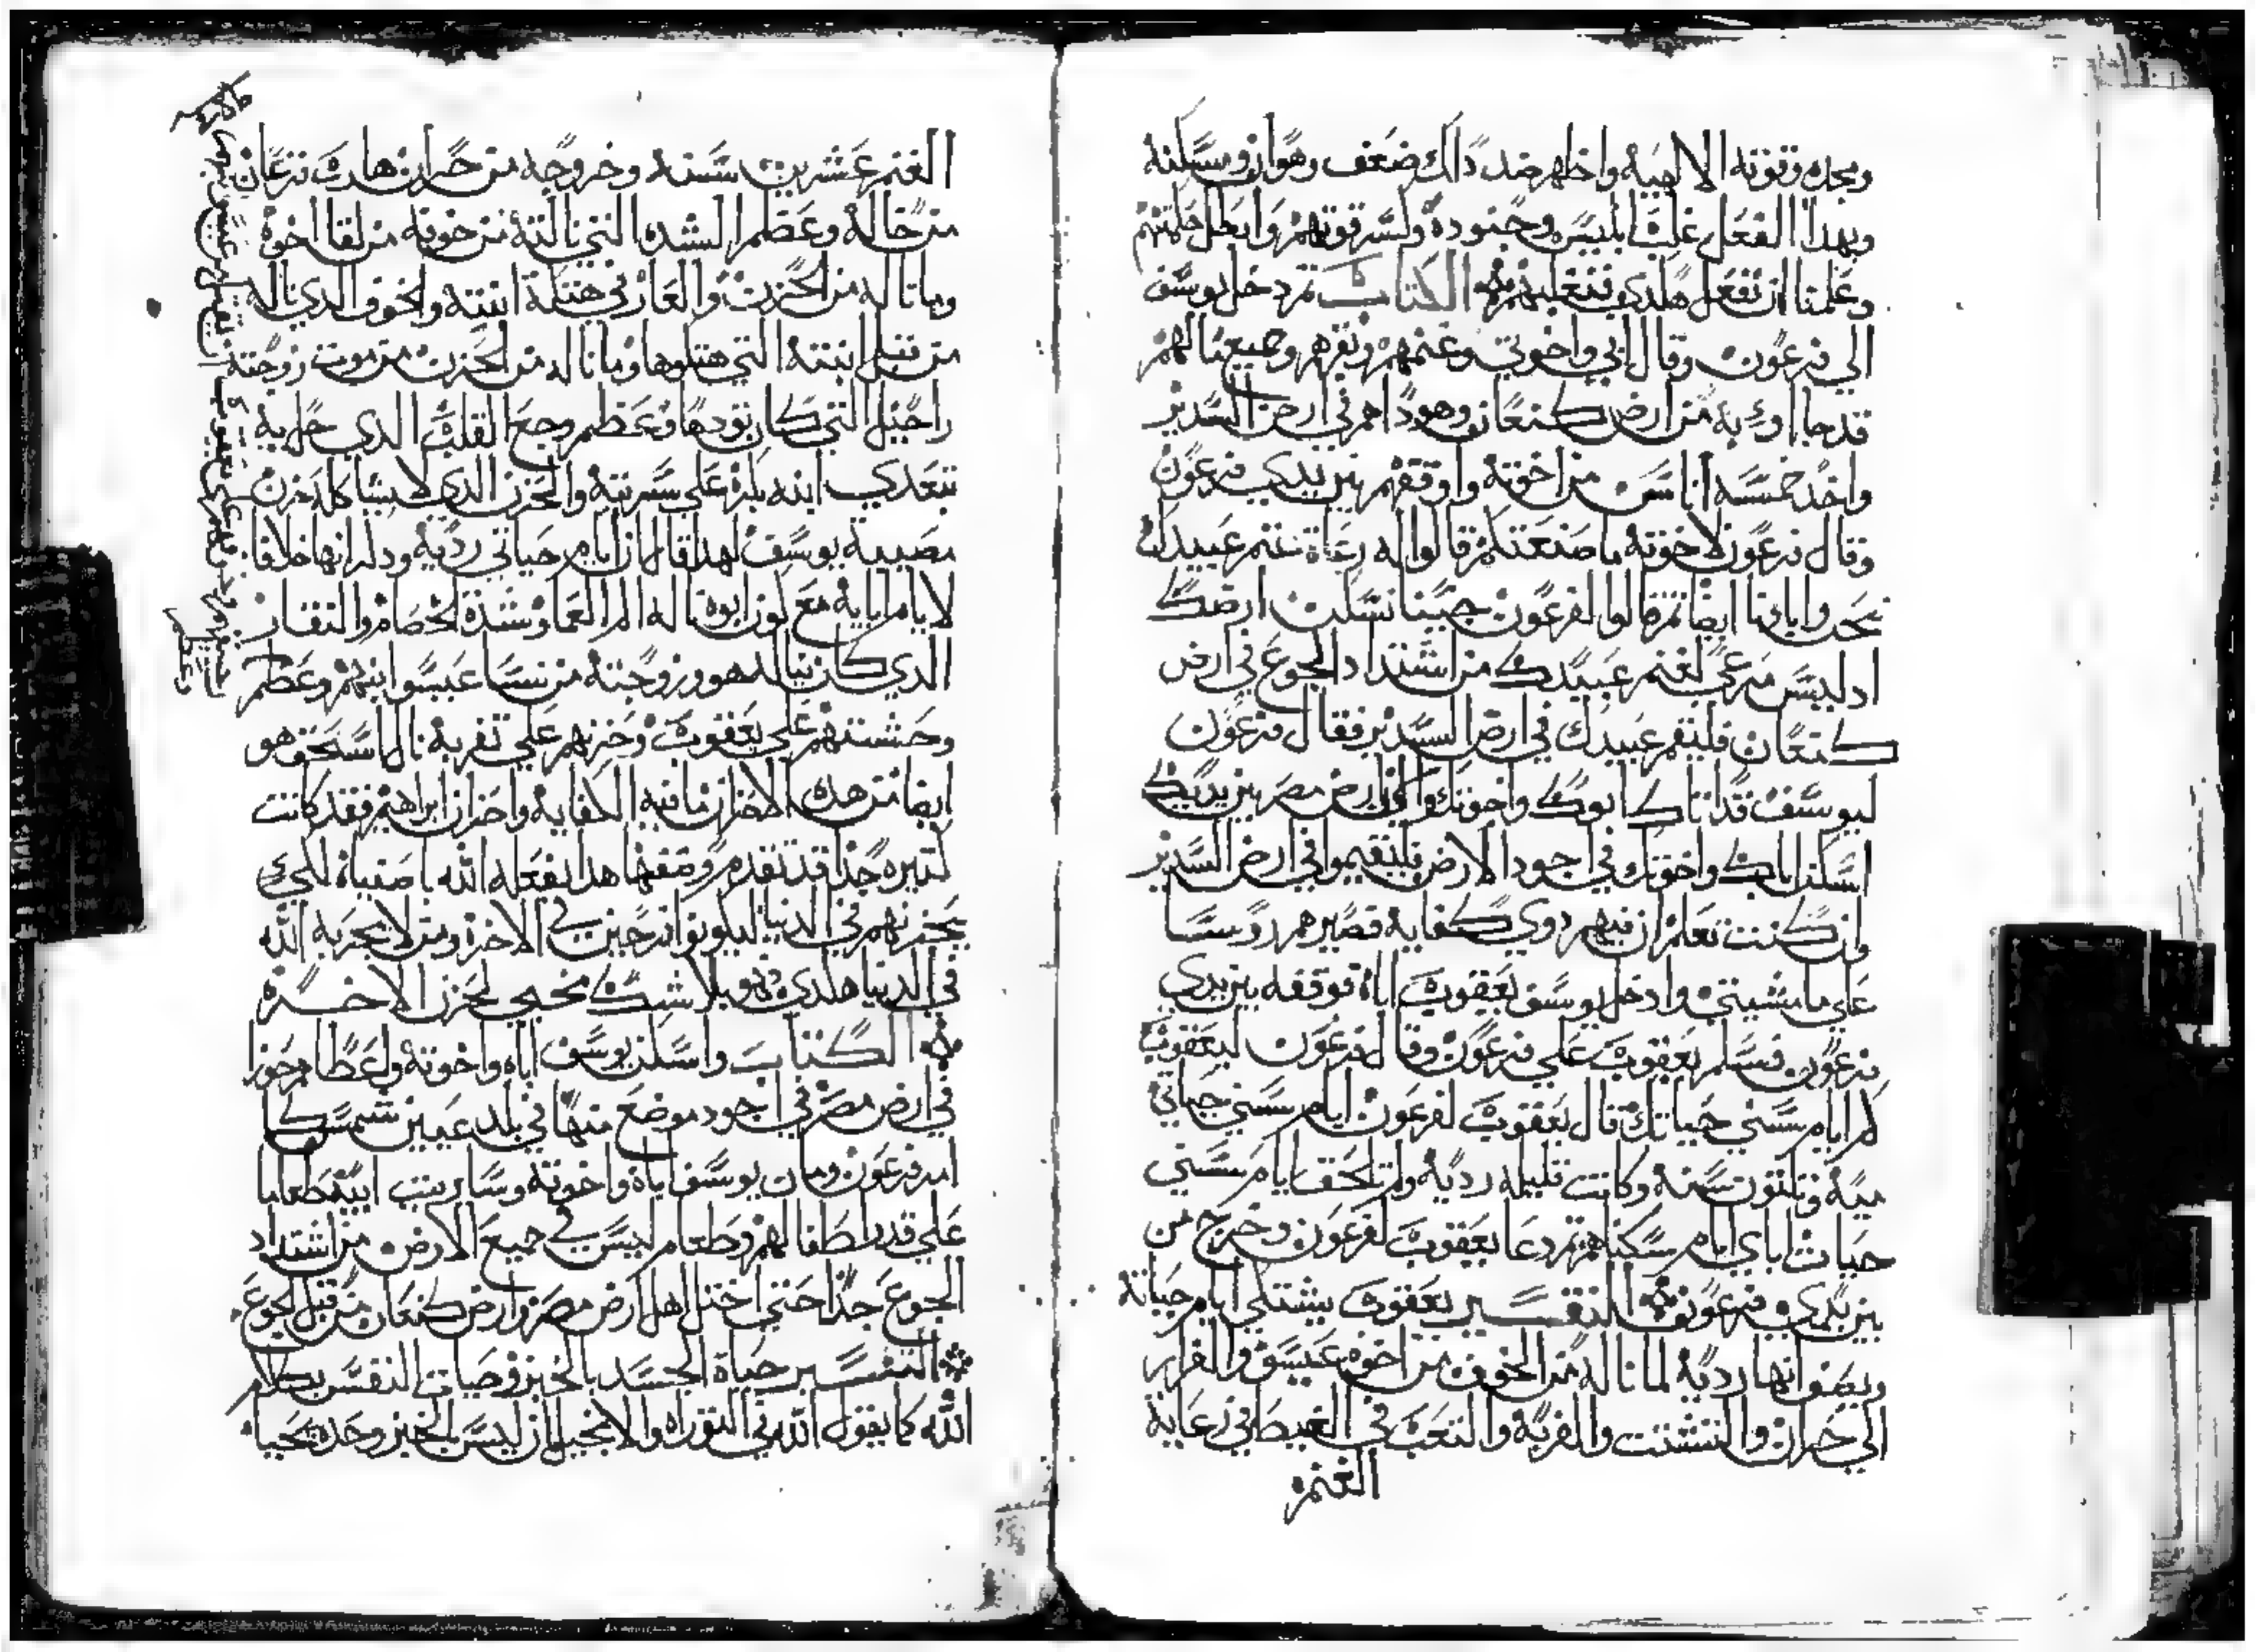 ومجده وقوته الالهية واظهر ضد ذالك ضعف وهوان ومسكنه
وبهدا الفعل غلب ابليس وجنوده وكسر قوتهم وابطل حكمتهم
وعلمنا ان نفعل هكدي فنغلبهم الكتاب تم دخل يوسف
الي فرعون وقال ابي واخوتي وغنمهم وبقرهم وجميع مالهم
قد جاا وا به من ارض كنعان وهودا هم في ارض السدير
واخد خمسه اناس من اخوته واوقفهم بين يدي فرعون
وقال فرعون لاخوته ما صنعتكم قالوا له رعاة غنم عبيدك
نحن واباونا ايضا تم قالوا لفرعون جينا نسكن ارضك
اد ليس مرعي لغنم عبيدك من اشتداد الجوع في ارض
كنعان فليقم عبيدك في ارض السدير فقال فرعون
ليوسف قد اتاك ابوك واخوتك وارض مصر بين يديك
اسكن اباك واخوتك في اجود الارض فليقيموا في ارض السدير
وان كنت تعلم ان فيهم دوي كفايه فصيرهم روسا
علي ماشيتي وادخل يوسف يعقوب اباه فوقفه بين يدي
فرعون فسلم يعقوب علي فرعون وقال فرعون ليعقوب
كم ايام سني حياتك قال يعقوب لفرعون ايام سني حياتي
مية وتلتون سنة وكانت قليله ردية ولم تلحق ايام سني
حيات اباي ايام سكناهم تم دعا يعقوب لفرعون وخرج من
بين يدي فرعون التفسير يعقوب يشتكي ايام حياته
ويصف انها ردية لما ناله من الخوف من اخوه عيسو والفرار
الي حران والتشتت والغربة والتعب في الغيط في رعاية
الغنم
الغنم عشرين سنه وخروجه من حران هارب فزعان
من خاله وعظم الشده التي نالته من خوفه من لقا اخوة
وما ناله من الحزن والعار في هتكة ابنته والخوف الدي ناله
من قبل ابنته التي هتكوها وما ناله من الحزن من موت زوجته
راحيل التي كان يودها وعظم وجع القلب الدي حل به
بتعدي ابنه بكره علي سريته والحزن الدي لا يشاكله حزن
مصيبة يوسف لهدا قال ان ايام حياتي ردية ودكر انها خلافا
لايام ابايه مع كون ابوه ناله الم العما وشدة الخصام والنقار
الدي كان يناله هو وزوجته من نسا عيسو ابنهم وعظم
وحشتهم علي يعقوب وحزنهم علي تغربه نال اسحق هو
ايضا من هده الاحزان ما فيه الكفايه واحزان ابراهيم فقد كانت
كتيره جدا قد تقدم وصفها هدا يفعله الله باصفياه لكي
يحزنهم في الدنيا ليكونوا فرحين في الاخرة ومن لا يجربه الله
في الدنيا هكدي فهو بلا شك مخبي لحزن الاخرة
الكتاب واسكن يوسف اباه واخوته واعطاهم حوزا
في ارض مصر في اجود موضع منها في بلد عين شمس كما
امر فرعون ومان يوسف اباه واخوته وساير بيت ابيه طعاما
علي قدر اطفالهم وطعام ليس في جميع الارض من اشتداد
الجوع جدا حتي اختل اهل ارض مصر وارض كنعان من قبل الجوع
التفسير حياة الجسد بالخبز وحيات النفس بكلام
الله كما يقول الله في التوراه والانجيل ان ليس بالخبز وحده يحيا